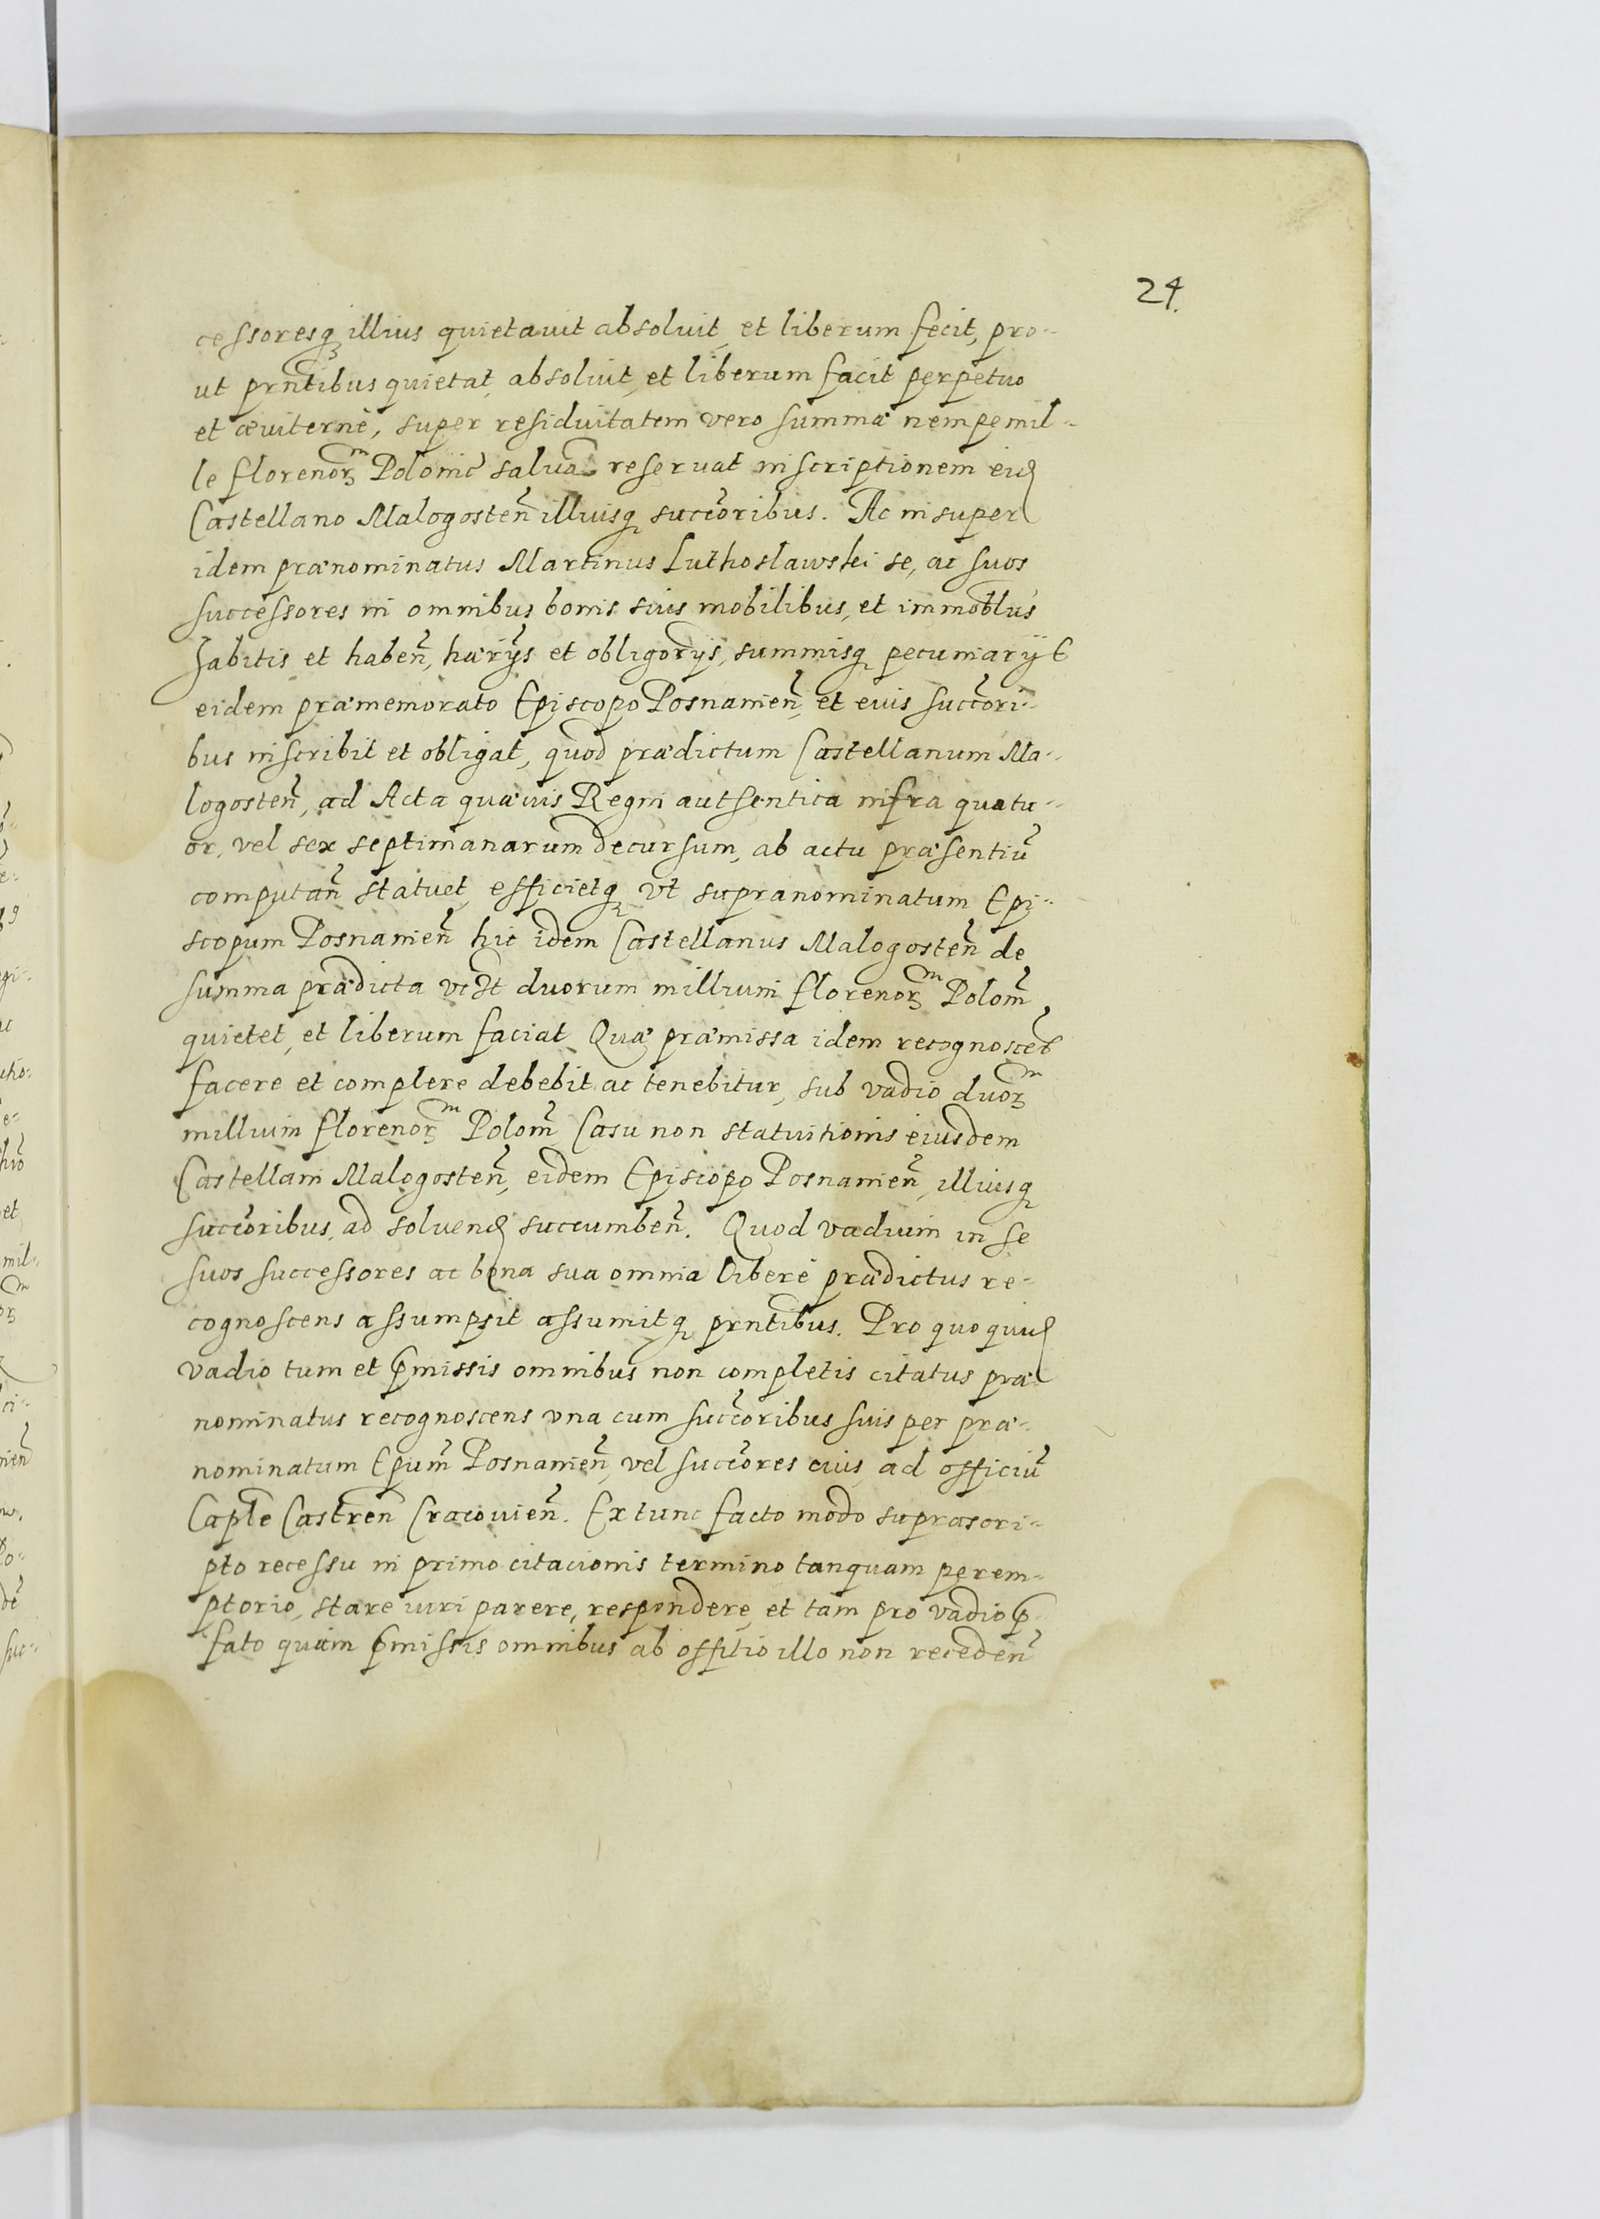 24.
cessoresq illius quietavit absoluit, et liberum fecit, pro-
ut prntibus quietat, absoluit, et liberum facit perpetuo
et æviternè, super residuitatem vero summæ nempe mil-
le florenorm Polonic saluã reseruat inscriptionem eid
Castellano Malogosten illiusq succoribus. Ac insuper
idem prænominatus Martinus Luthoslawski se, ac suos
successores in omnibus bonis suis mobilibus, et immoblus
habitis et haben, hærijs et obligorijs, summisq pecuniarij
eidem præmemorato Episcopo Posnanien, et eius succori-
bus inscribit et obligat, quod prædictum Castellanum Ma-
logosten, ad Acta quæuis Regni authentica infra quatu-
or, vel sex septimanarum decursum, ab actu præsentiũ
computan statuet, efficietq vt supranominatum Epi-
scopum Posnanien hic idem Castellanus Malogosten de
summa prædicta duorum millium florenorm Polon
quietet, et liberum faciat Quæ præmissa idem recognoscet
facere et complere debebit ac tenebitur, sub vadio duorm
millium florenorm Polon, Casu non statuitionis eiusdem
Castellani Malogosten, eidem Episcopo Posnanien, illiusq
succoribus, ad soluend succumben. Quod vadium in se
suos successores ac bona sua omnia liberè prædictus re-
cognoscens assumpsit assumitq prntibus. Pro quo quid
vadio tum et pmissis omnibus non completis citatus præ
nominatus recognoscens vna cum succoribus suis per præ-
nominatum Epum Posnanien, vel succores eius, ad officiũ
Caple Castren Cracouien. Ex tunc facto modo suprascri-
pto recessu in primo citacionis termino tanquam perem-
ptorio, stare iuri parere, respondere, et tam pro vadio p-
fato quàm pmissis omnibus ab offitio illo non receden